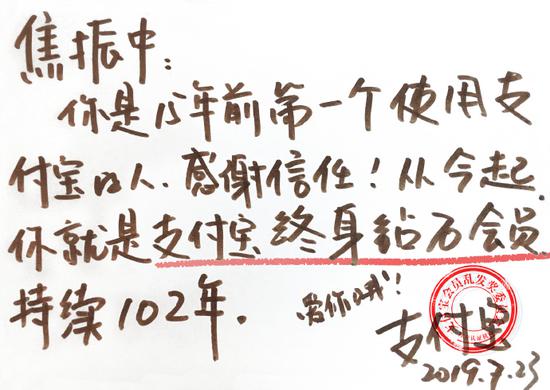 焦振中：
你是15年前第一个使用支
付宝的人，感谢信任！从今起，
你就是支付宝终身钻石会员
持续102年。
爱你哦！
支付宝
宝会员乱发奖委员
2019.7.23